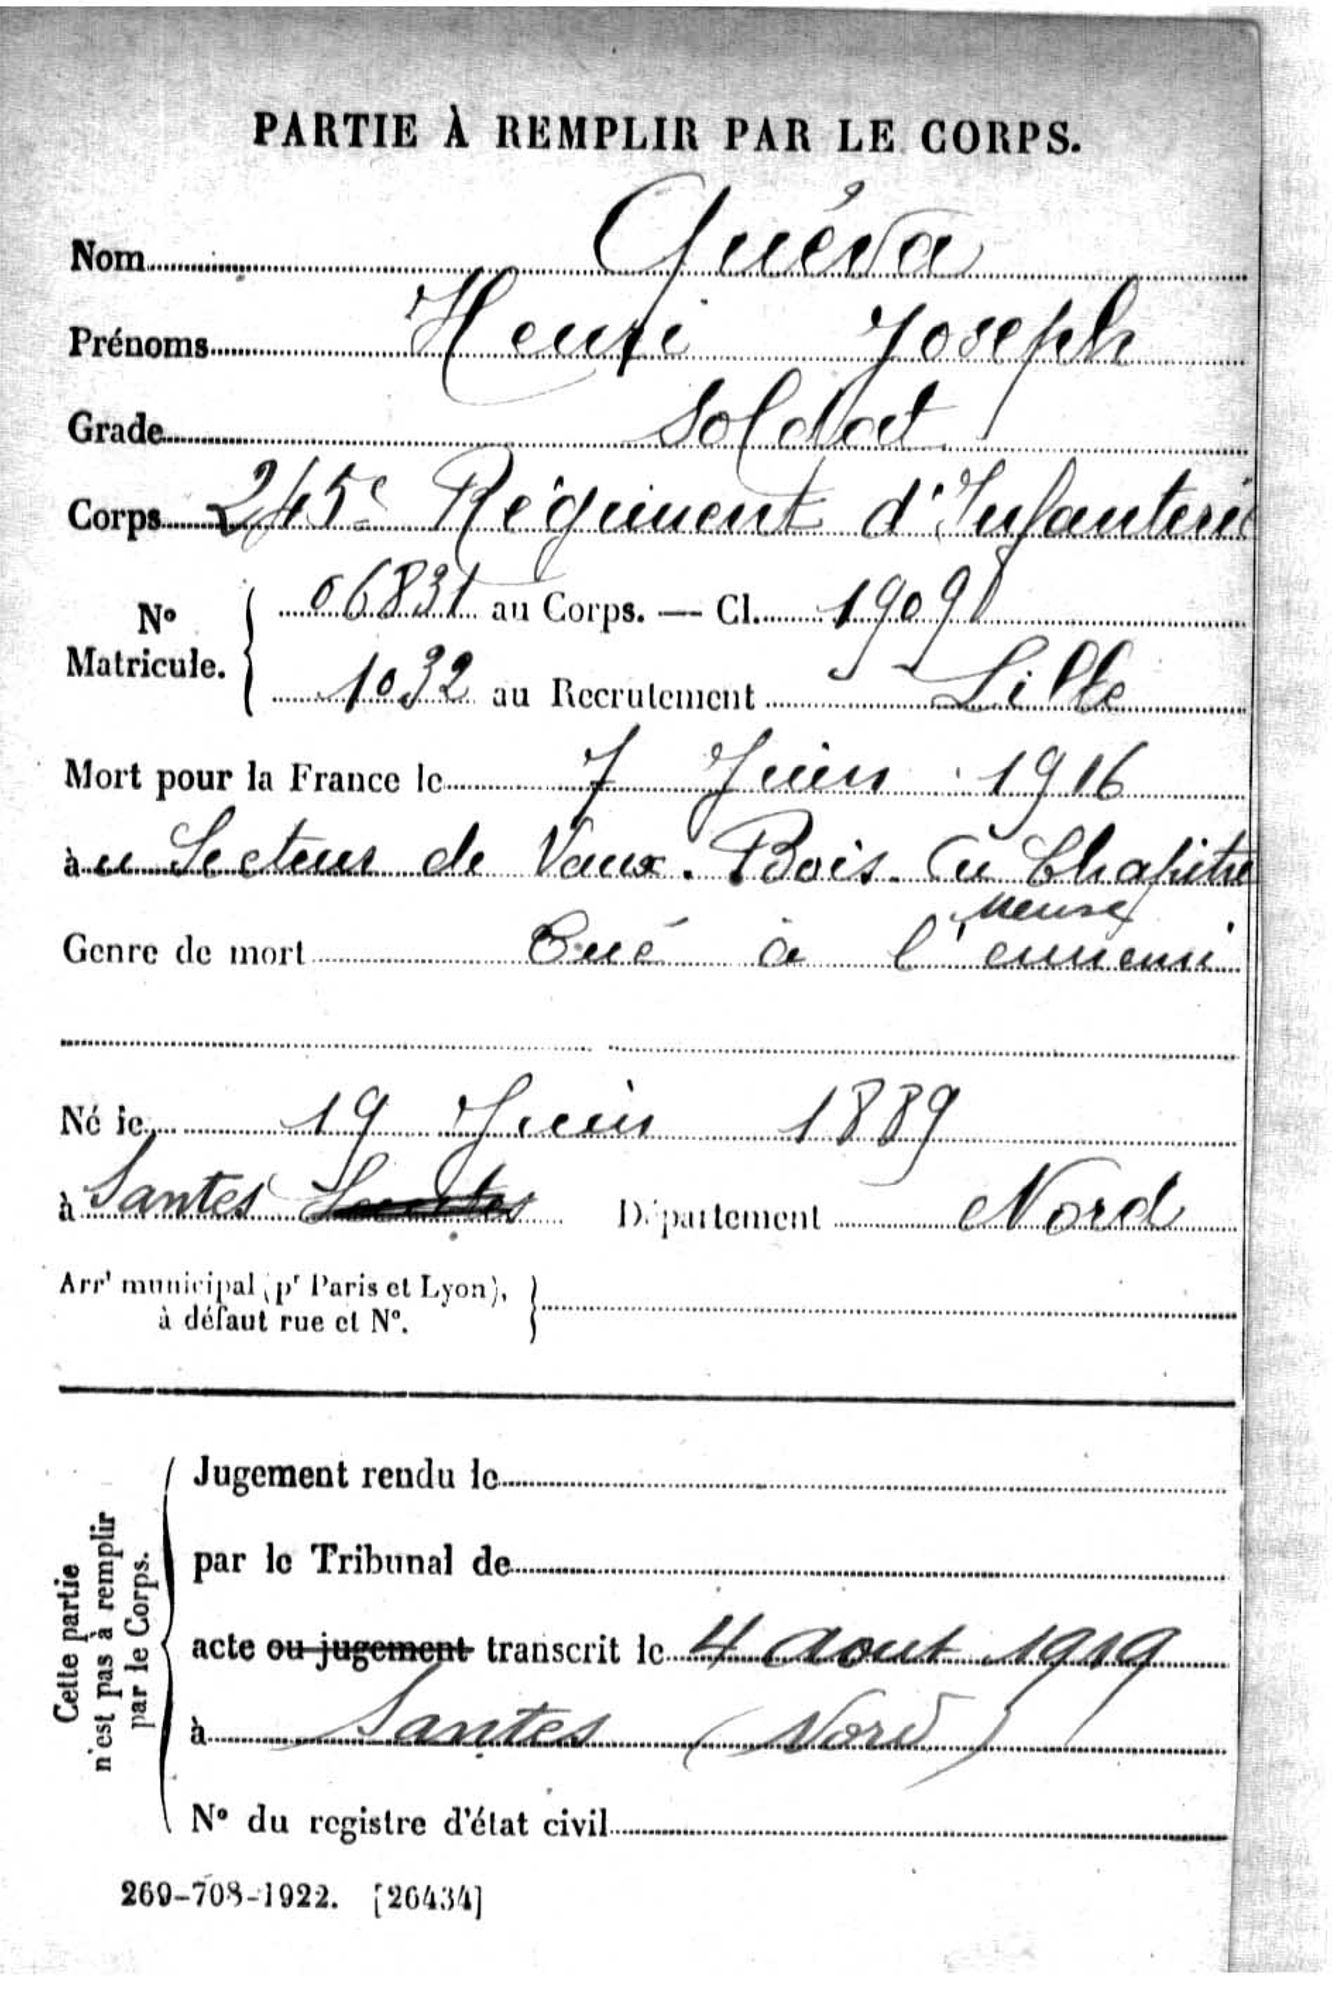 PARTIE À REMPLIR PAR LE CORPS.
Nom Quéva
Prénoms Henri Joseph
Grade Soldat
Corps 245e Régiment d'Infanterie
No Matricule. 06831 au Corps. — Cl. 1909
1032 au Recrutement Lille
Mort pour la France le 7 Juin 1916
au Secteur de Vaux. Bois du Chapitre
Meuse
Genre de mort Tué à l'ennemi
Né le 19 Juin 1889
à Santes Département Nord
Arrt municipal (pr Paris et Lyon),
à défaut rue et No.
Cette partie
n'est pas à remplir
par le Corps.
Jugement rendu le
par le Tribunal de
acte ou jugement transcrit le 4 Aout 1919
à Santes (Nord)
No du registre d'état civil
269-708-1922. [26434]